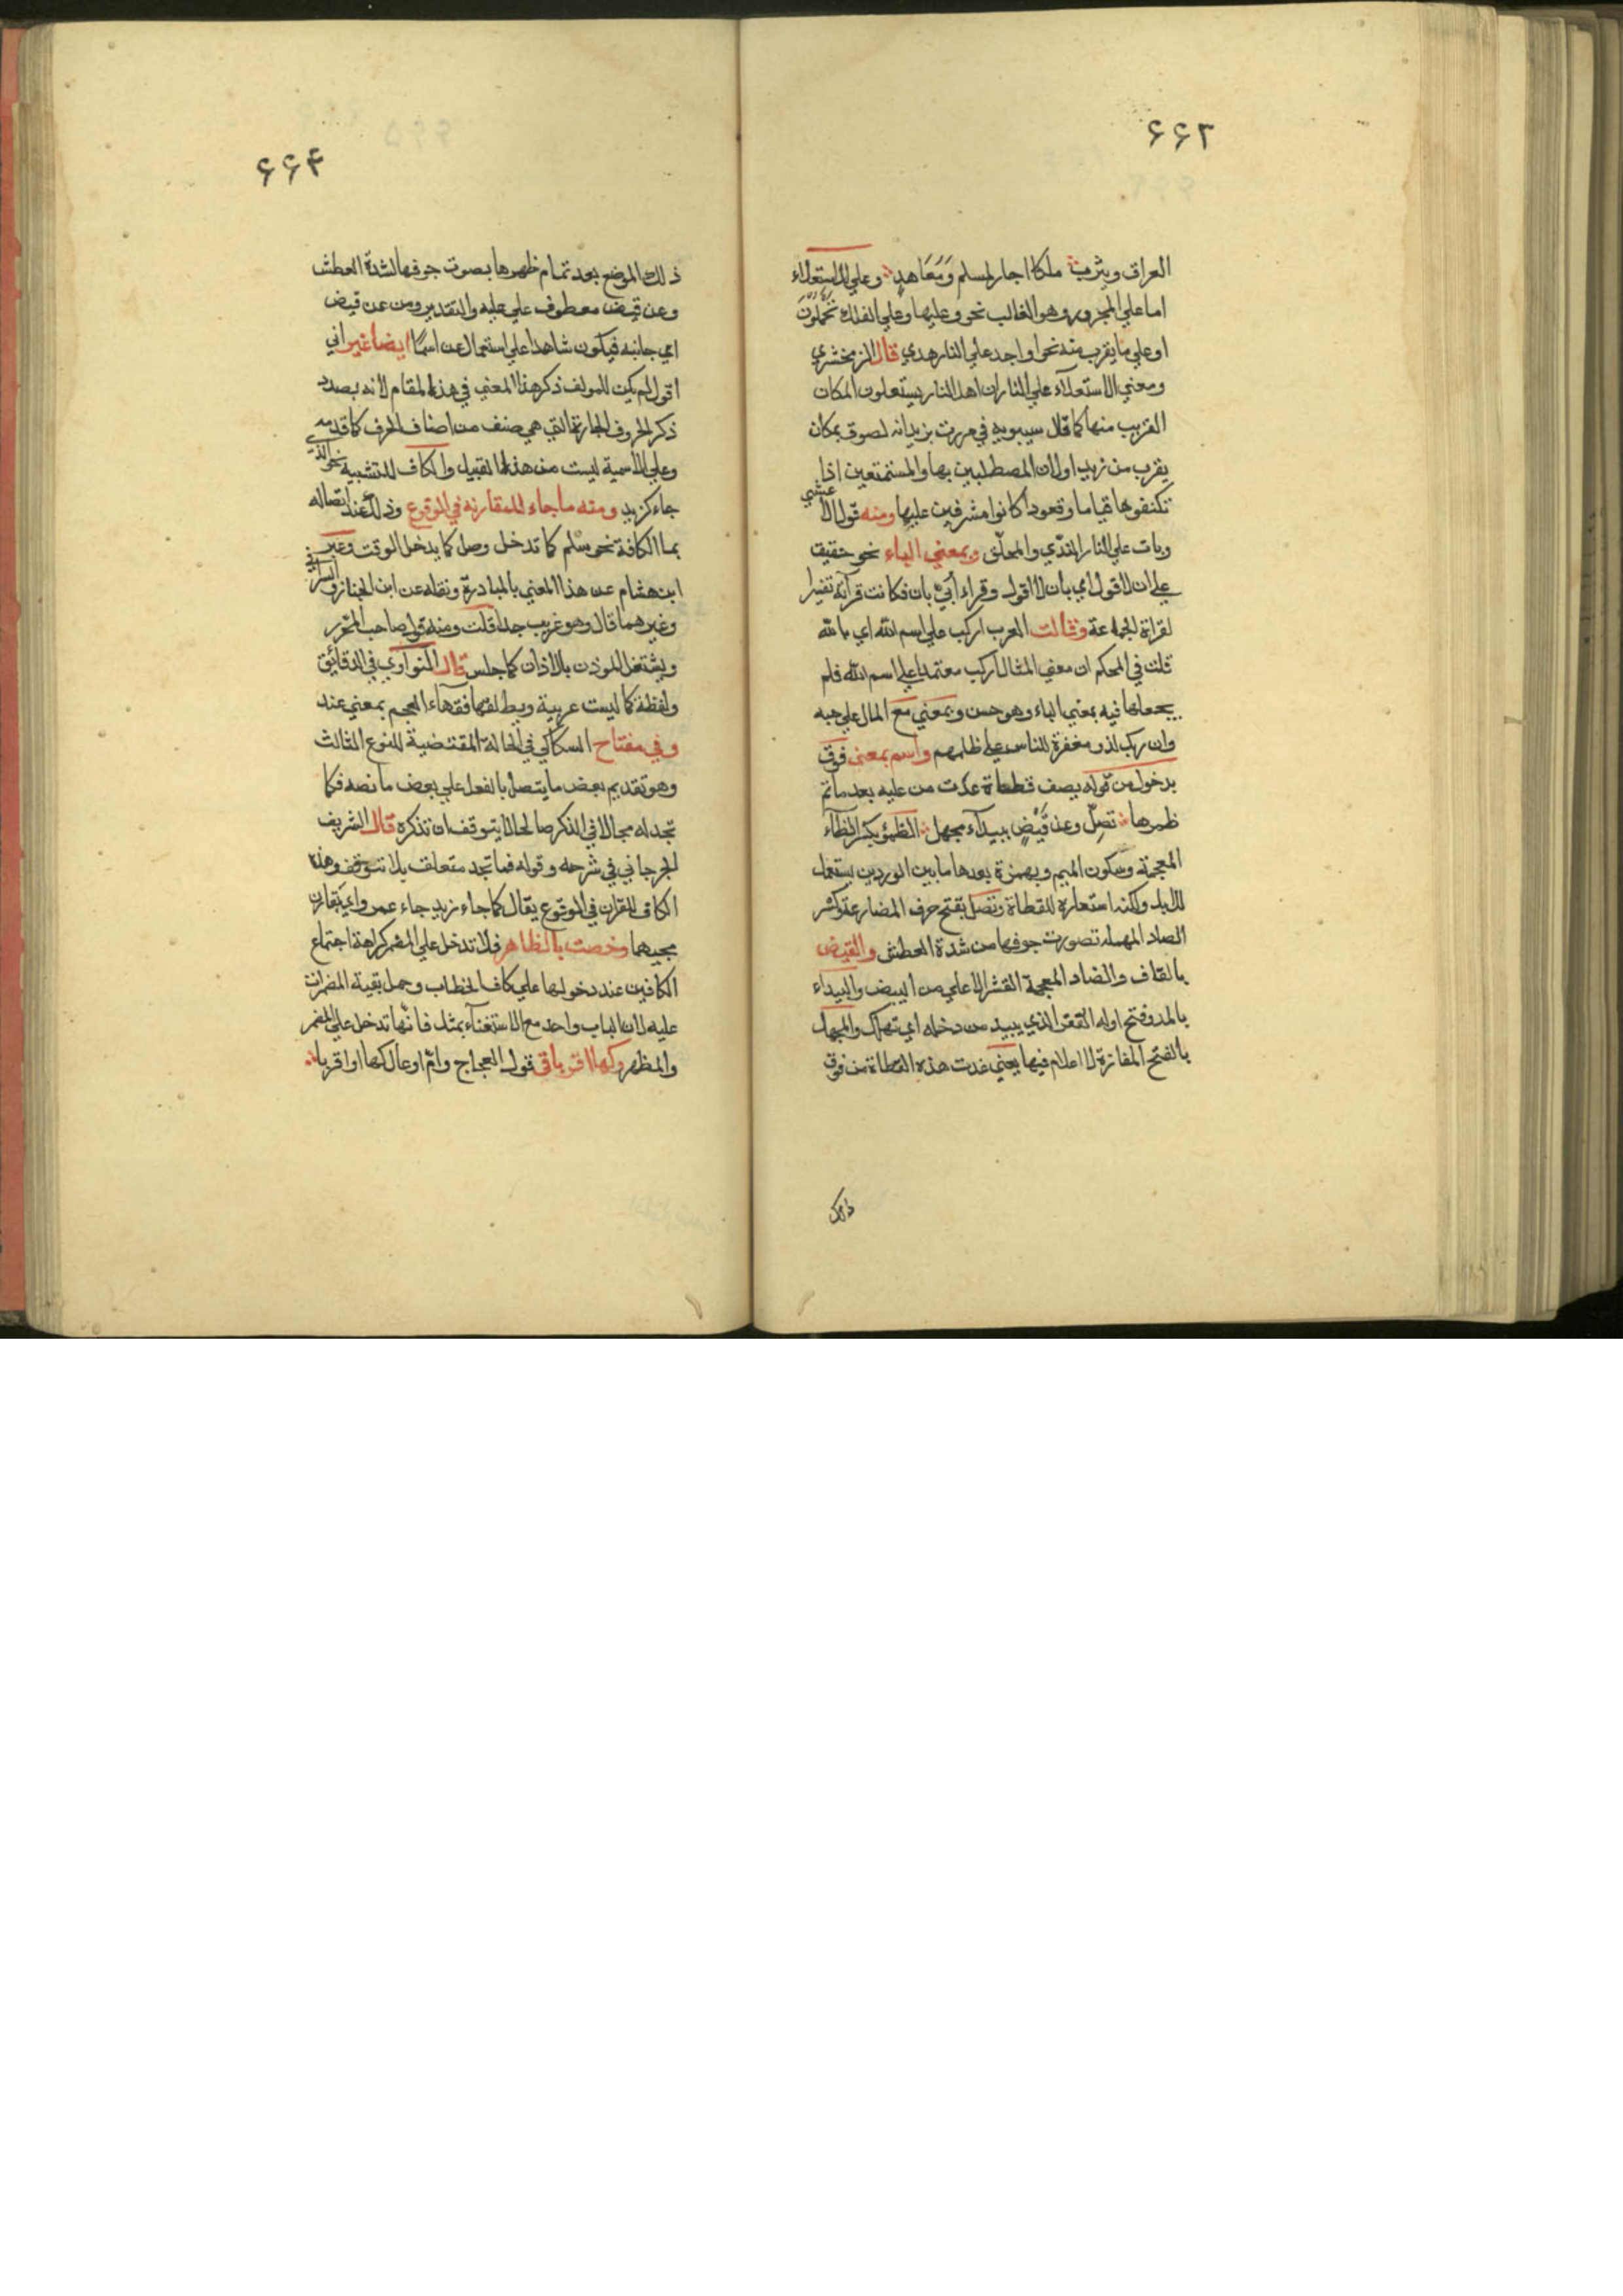 ٦٦٢
العراق ويثرب ملكا اجار لمسلم وَمَعَاهدٍ وعلي للاستعلاء
اما علي المجرور وهو الغالب نحو وعليها وعلي الفلك تحملون
او علي ما يقرب منه نحو او اجد علي النار هدي قال الزمخشري
ومعني الاستعلاء علي النار ان اهل النار يستعلون المكان
القريب منها كما قال سيبويه في مررت بزيد انه لصوق بمكان
يقرب من زيد اولان المصطلين بها والمستمتعين اذا
تكنفوها قياما وقعودا كانوا مشرفين عليها ومنه قول الاعشي
وبات علي النار الندي والمحلّق وبمعني الباء نحو حقيق
علي ان لا اقول اي بان لا اقول وقراء أبيّ بان فكانت قرآته تفسيرا
لقراة الجماعة وقالت العرب اركب علي اسم الله اي بالله
قلت في المحكم ان معني المثال اركب معتمدا علي اسم الله فلم
يجعلها فيه بمعني الباء وهو حسن وبمعني مع المال علي حبه
وان ربك لذو مغفرة للناس علي ظلمهم واسم بمعني فوق
بدخول من قوله يصف قطاة غدت من عليه بعد ما تم
ظمؤها تصِلّ وعن قَيْضٍ ببيدآء مجهل الظمؤ بكسر الظآء
المعجمة وسكون الميم وبهمزة بعدها ما بين الوردين يستعمل
للابل ولكنه استعاره للقطاة وتصل بفتح حرف المضارعة وكسر
الصاد المهملة تصورت جوفها من شدة العطش والقيض
بالقاف والضاد المعجمة القشر الاعلي من البيض والبيداء
بالمد وفتح اوله القفر الذي يبيد من دخله اي تهلك والمجهل
بالفتح المفازة لا اعلام فيها يعني غدت هذه القطاة من فوق
ذلك
٦٦٤
ذلك الموضع بعد تمام ظمؤها بصوت جوفها لشدة العطش
وعن قيض معطوف علي عليه والتقدير ومن عن قيض
اي جانبه فيكون شاهدا علي استعمال عن اسمًا ايضا غير اني
اقول لم يكن للمولف ذكر هذا المعني في هذا المقام لانه بصدد
ذكر الحروف الجارة التي هي صنف من اصناف الحرف كما قدمه
وعلي الاسمية ليست من هذا القبيل والكاف للتشبيه نحو الذي
جاء كزيد ومنه ما جاء للمقارنة في الوقوع وذلك عند اتصاله
بما الكافة نحو سلم كما تدخل وصل كما يدخل الوقت وعبر
ابن هشام عن هذا المعني بالمبادرة ونقله عن ابن الخباز والسيرافي
وغيرهما قال وهو غريب جدا قلت ومنه قول صاحب المحرر
ويشتغل الموذن بالاذان كما جلس قال النواوي في الدقائق
ولفظة كما ليست عربية ويطلقها فقهاء العجم بمعني عند
وفي مفتاح السكاكي في الحالة المقتضية للنوع الثالث
وهو تقديم بعض ما يتصل بالفعل علي بعض ما نصه فكما
تجد له مجالا في الذكر صالحا لا يتوقف ان تذكره قال الشريف
الجرجاني في شرحه وقوله فما تجد متعلق بلا تتوقف وهذه
الكاف للقران في الوقوع يقال كما جاء زيد جاء عمرو اي يتقارن
مجيهما وخصت بالظاهر فلا تدخل علي المضمر كراهة اجتماع
الكافين عند دخولها علي كاف الخطاب وحمل بقية المضمرات
عليه لان الباب واحد مع الاستغنآء بمثل فانها تدخل علي المضمر
والمظهر وكها اقرباقى قول العجاج وامّ اوعال كها او اقربا